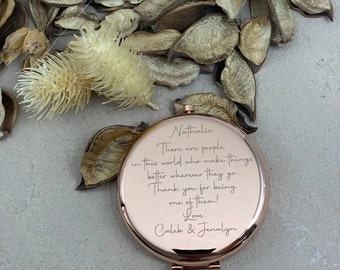 Nathalie
There are people
in this world who make things
better wherever they go
Thank you for being
one of them!
Love,
Caleb & Jenalyn